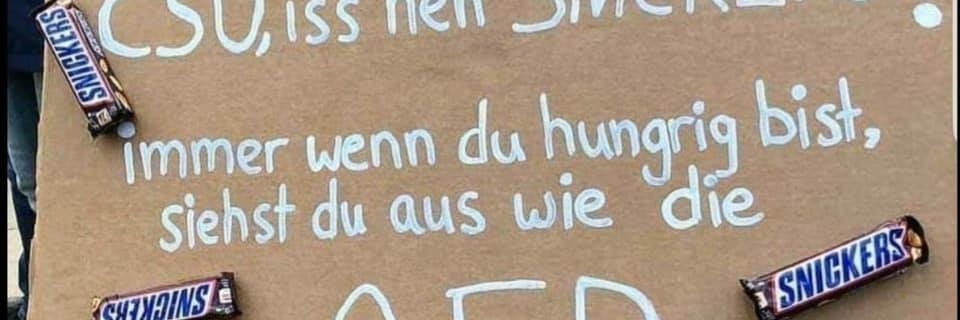 CSU, iss nen SNICKERS!
immer wenn du hungrig bist,
siehst du aus wie die
AFD
SNICKERS
SNICKERS
SNICKERS